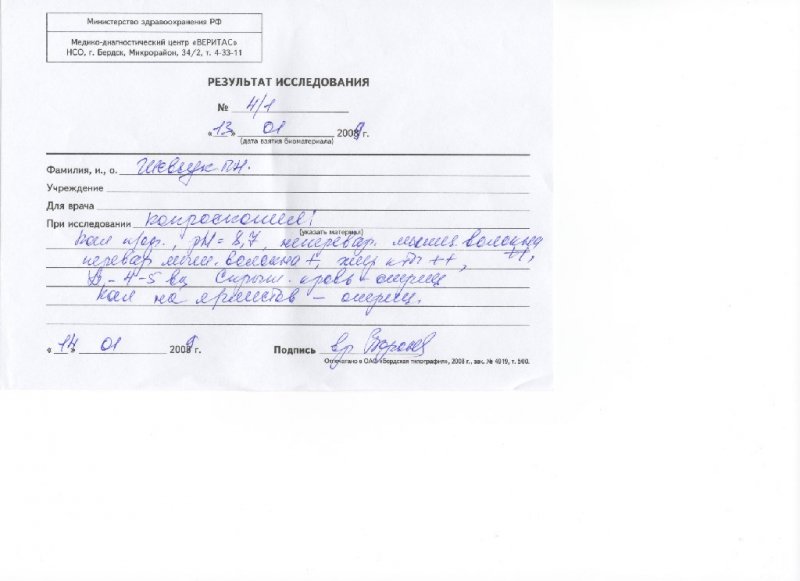 Министерство здравоохранения РФ
Медико-диагностический центр «ВЕРИТАС»
НСО, г. Бердск, Микрорайон, 34/2, т. 4-33-11
РЕЗУЛЬТАТ ИССЛЕДОВАНИЯ
№ 4/1
«13» 01 2009 г.
(дата взятия биоматериала)
Фамилия, и., о. Шевчук П.Н.
Учреждение
Для врача
При исследовании копроскопия:
(указать материал)
Кал , pH = 8,7, неперевар. мышц. волокна
++,
перевар. мыш. волокна +, ++,
L - 4-5 вп Скрыт. кровь - отриц
Кал на - отриц.
«14» 01 2009 г. Подпись вр.
Отпечатано в ОАО «Бердская типография», 2008 г., зак. № 4919, т. 500.